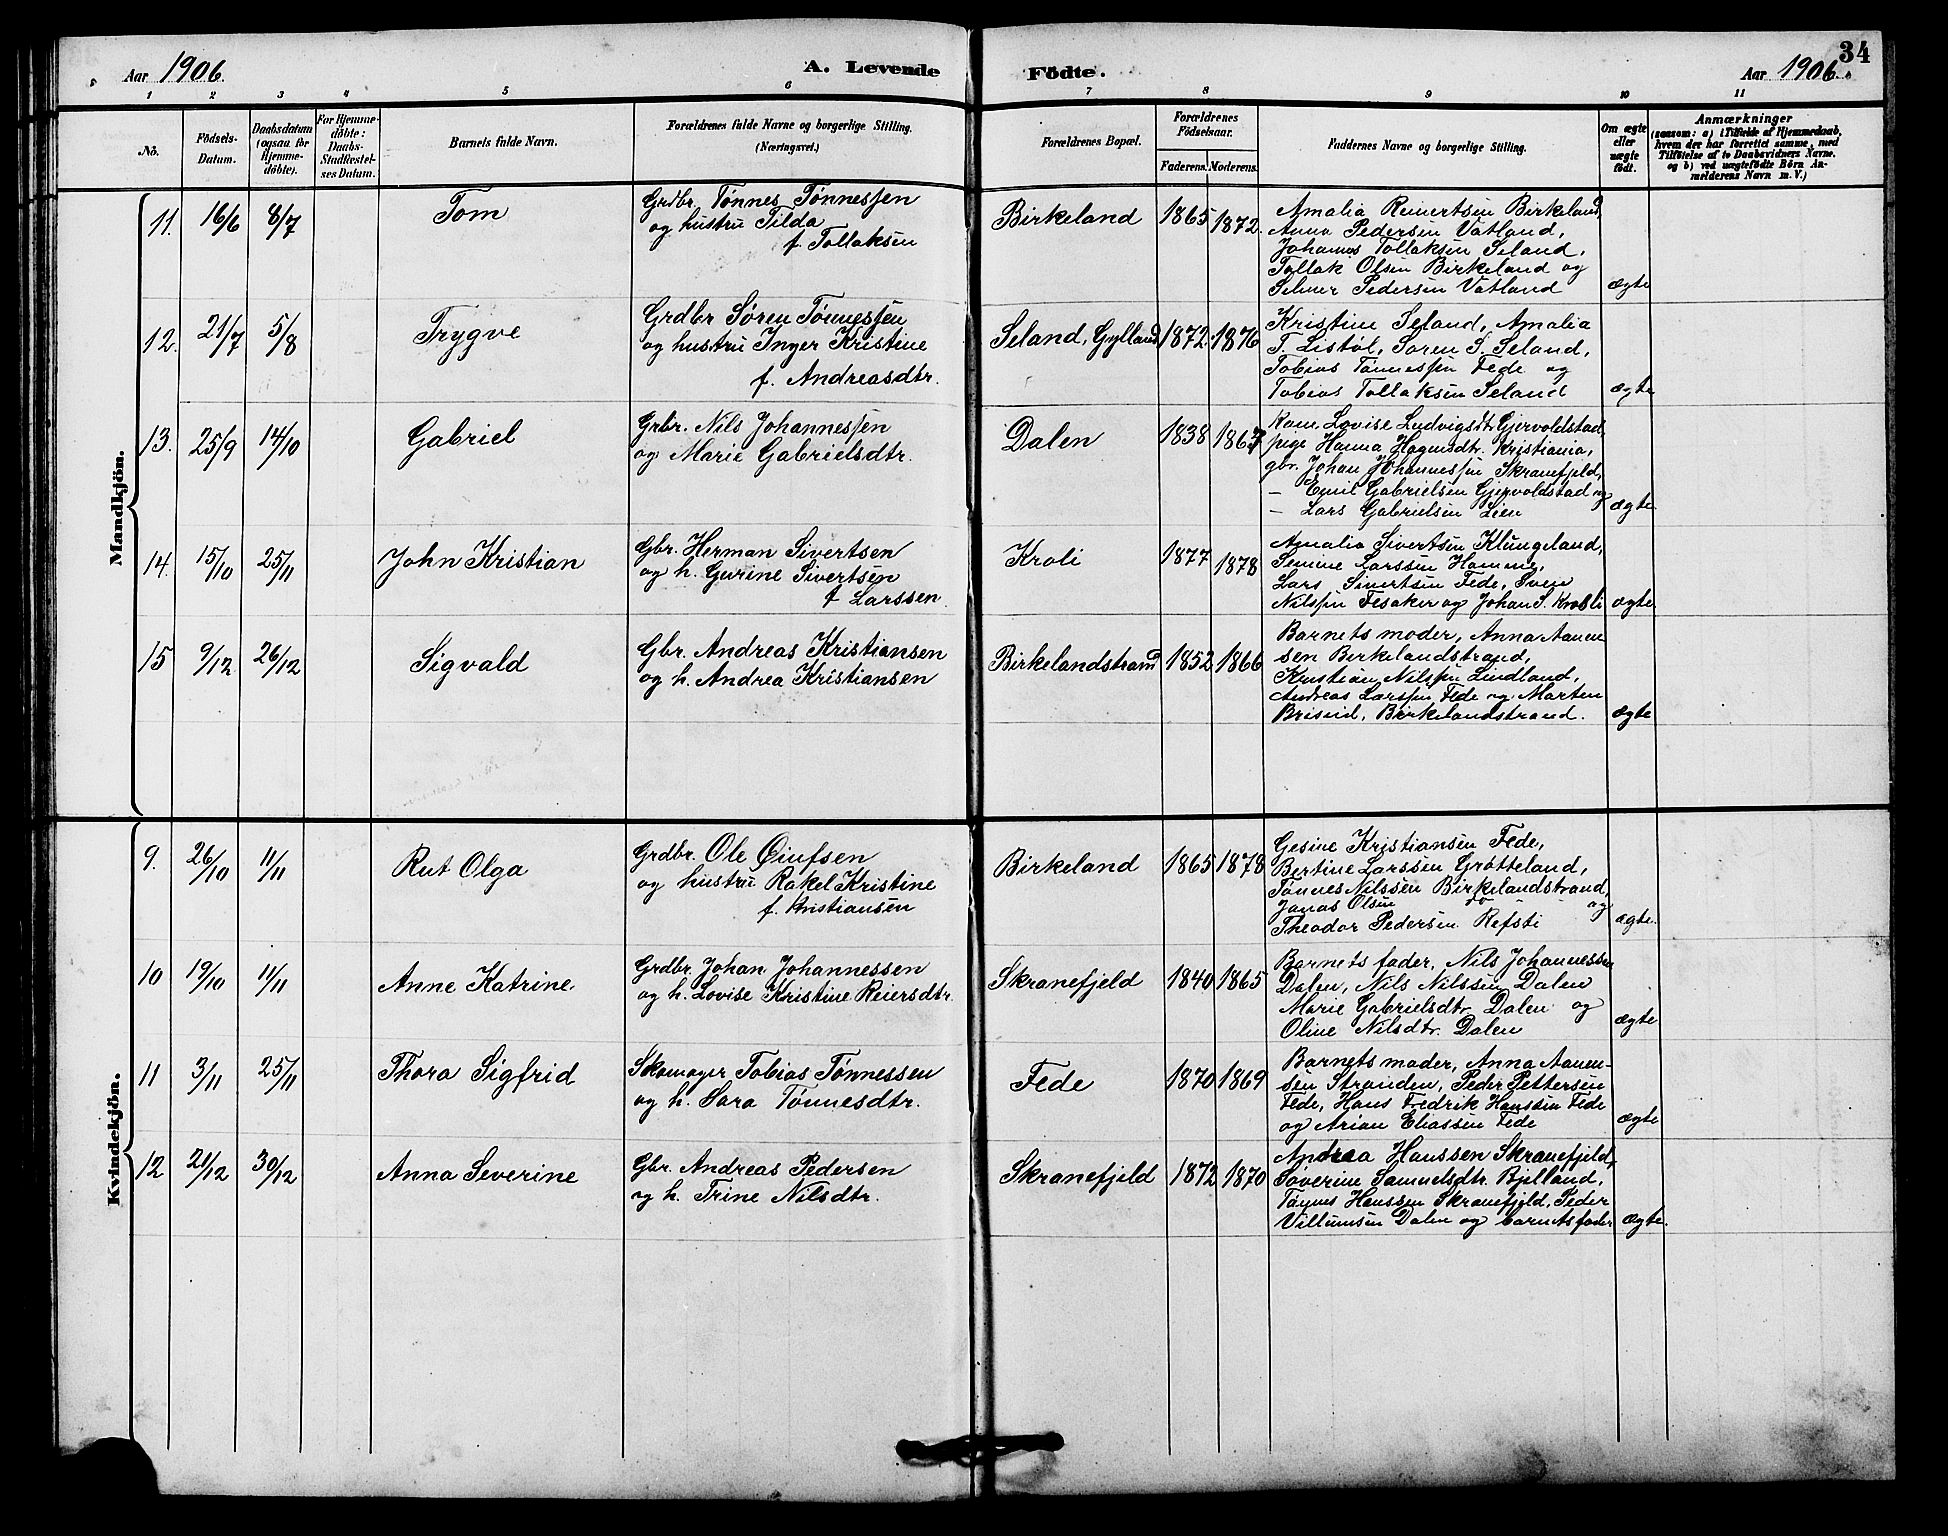 34
Aar 1906.
A. Levende Födte.
Aar 1906.
1 2 3 4 5 6 7 8 9 10 11
No.
Födsels-
Datum.
Daabsdatum
(ogsaa for
Hjemme-
döbte).
For Hjemme-
döbte:
Daabs-
Stadfæstel-
ses Datum.
Barnets fulde Navn.
Forældrenes fulde Navne og borgerlige Stilling.
(Næringsvei.)
Forældrenes Bopæl.
Forældrenes
Födselsaar.
Faderens. Moderens.
Faddernes Navne og borgerlige Stilling.
Om ægte
eller
uægte
födt.
Anmærkninger
(saasom: a) i Tilfælde af Hjemmedaab,
hvem der har forrettet samme, med
Tilföielse af to Daabsvidners Navne,
og b) ved uægtefödte Börn An-
melderens Navn m. V.)
Mandkjön.
11. 16/6 8/7 Tom
Grdbr. Tønnes Tønnessen
og hustru Tilda
f. Tollaksen
Birkeland 1865 1872.
Amalia Reinertsen Birkeland,
Anna Pedersen Vatland,
Johannes Tollaksen Seland,
Tollak Olsen Birkeland og
Selmer Pedersen Vatland
ægte
12. 21/7 5/8 Trygve
Grdbr Søren Tønnessen
og hustru Inger Kristine
f. Andreasdtr.
Seland, Gylland 1872 1876
Kristine Seland, Amalia
T. Listøl, Søren S. Seland,
Tobias Tønnessen Fede og
Tobias Tollaksen Seland
ægte
13. 25/9 14/10 Gabriel
Grbr. Nils Johannessen
og Marie Gabrielsdtr.
Dalen 1838 1867
Kone Lovise Ludvigsdt. Gjervoldstad,
pige Hanna Hagensdtr. Kristiania,
gbr. Johan Johannessen Skranefjeld,
— Emil Gabrielsen Gjervoldstad og
— Lars Gabrielsen Lien
ægte
14. 15/10 25/11 John Kristian
Gbr. Herman Sivertsen
og h. Gurine Sivertsen
f Larssen.
Kroli 1877 1878
Amalia Sivertsen Klungeland,
Semine Larssen Hamme,
Lars Sivertsen Fede, Sven
Nilssen Fesaker og Johan S. Kroli
ægte.
15 9/12 26/12 Sigvald
Gbr. Andreas Kristiansen
og h. Andrea Kristiansen
Birkelandstrand 1852 1866
Barnets moder, Anna Aanen-
sen Birkelandstrand,
Kristian Nilssen Lindland,
Andreas Larssen Fede og Marten
Birkelandstrand.
ægte
Kvindekjön.
9. 26/10 11/11 Rut Olga
Grdbr. Ole Øiufsen
og hustru Rakel Kristine
f. Kristiansen
Birkeland 1865 1878
Gesine Kristiansen Fede,
Bertine Larssen Grøtteland,
Tønnes Nilssen Birkelandstrand,
Jonas Olsen do og
Theodor Pedersen Refsti
ægte.
10 19/10 11/11 Anne Katrine
Grdbr. Johan Johannessen
og h. Lovise Kristine Reiersdtr.
Skranefjeld 1840 1865
Barnets fader, Nils Johannessen
Dalen, Nils Nilssen Dalen
Marie Gabrielsdtr. Dalen og
Oline Nilsdtr. Dalen
ægte
11 3/11 25/11 Thora Sigfrid
Skomager Tobias Tønnessen
og h. Sara Tønnesdtr.
Fede 1870 1869
Barnets moder, Anna Aanen-
sen Stranden, Peder Pettersen
Fede, Hans Fredrik Hanssen Fede
og Arian Eliassen Fede
ægte
12 21/12 30/12 Anna Severine
Gbr. Andreas Pedersen
og h. Trine Nilsdtr.
Skranefjeld 1872 1870
Andrea Hanssen Skranefjeld,
Søverine Samuelsdtr. Bjelland,
Tønnes Hanssen Skranefjeld, Peder
Villumsen Dalen og barnets fader
ægte.